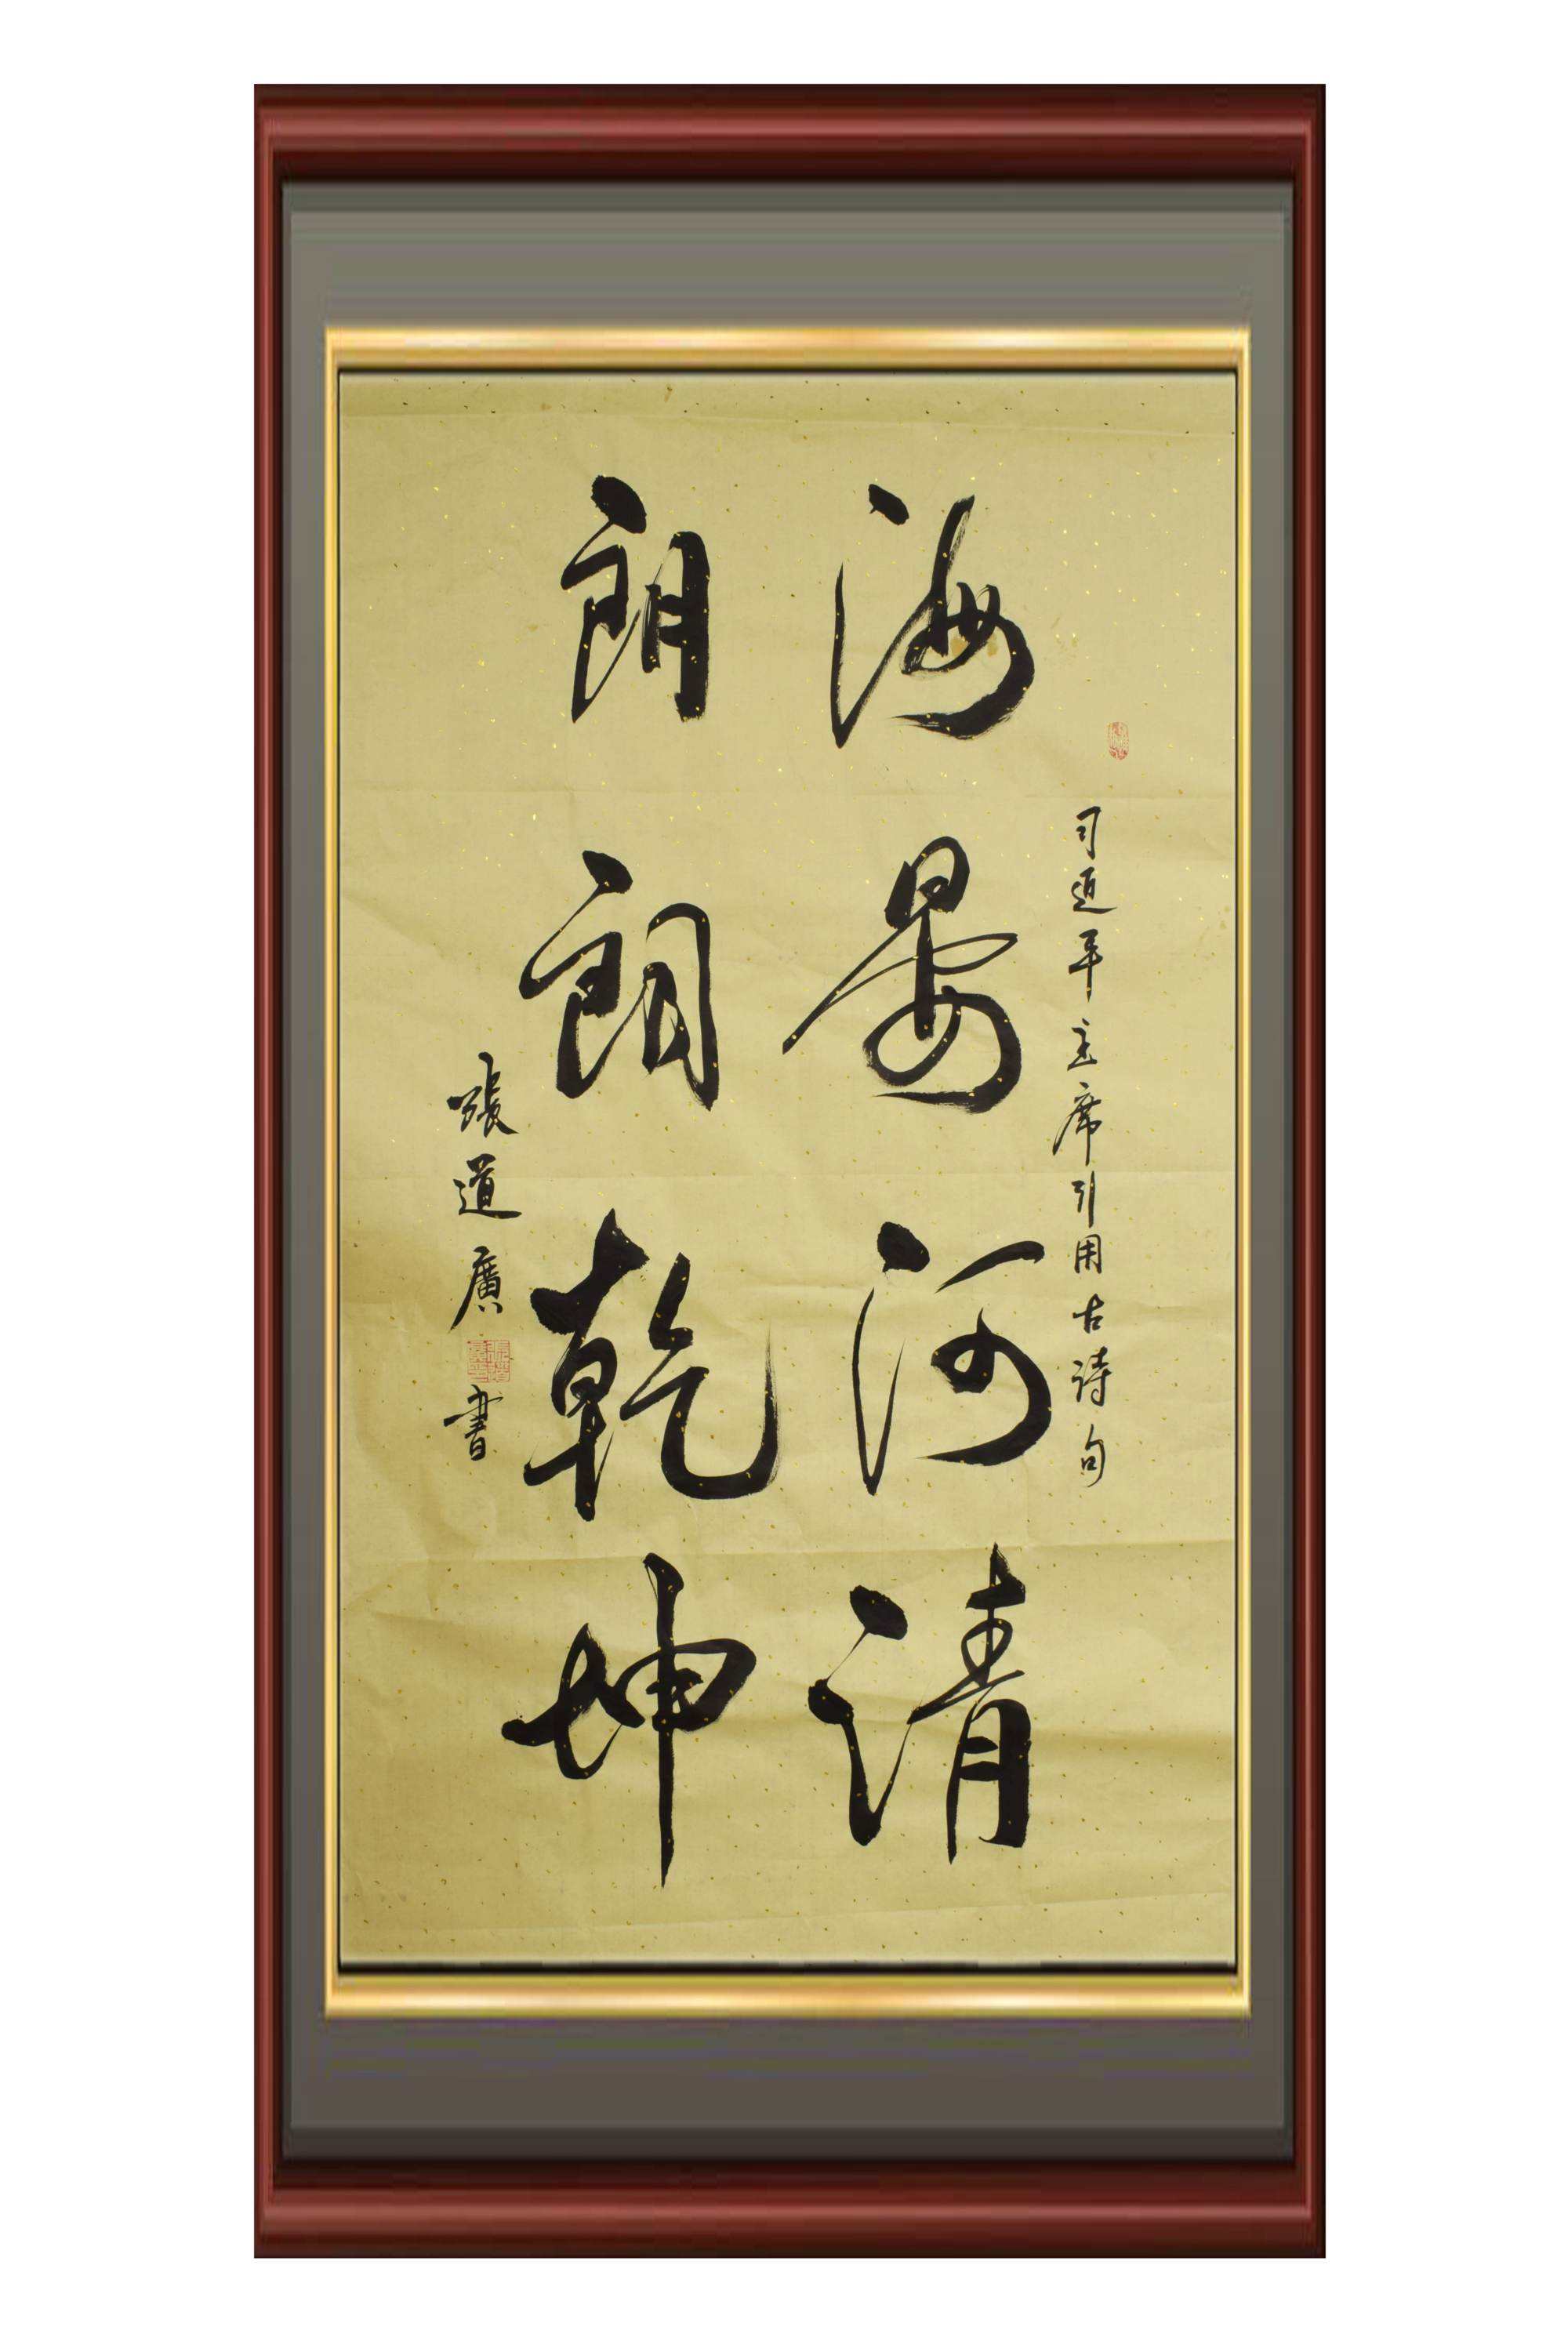 海晏河清
朗朗乾坤
习近平主席引用古诗句
張道廣
書